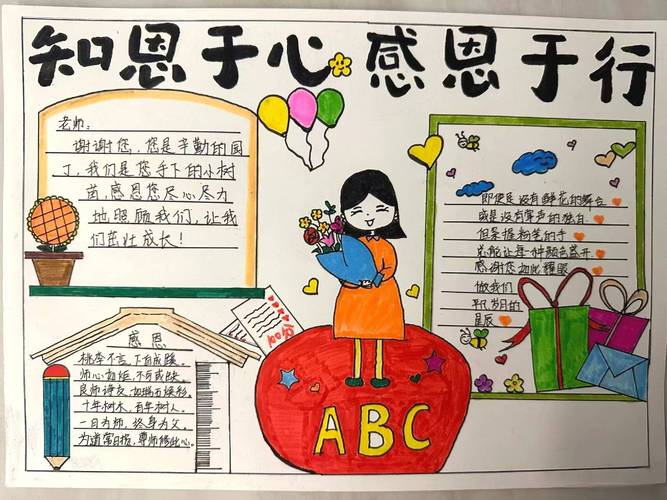 知恩于心 感恩于行
老师:
谢谢您,您是辛勤的园
丁,我们是您手下的小树
苗,感恩您尽心尽力
地照顾我们,让我
们茁壮成长!
即使是没有鲜花的舞台
或是没有掌声的独白
但紧握粉笔的手
总能让每一种颜色盛开
感谢您如此耀眼
做我们
平岁月的
星辰
感恩
桃李不言,下自成蹊。
师心如炬,不可或缺。
良师诤友,如瑞
十年树木,百年树人。
一日为师,终身为父。
为道常自抱,尊师
ABC